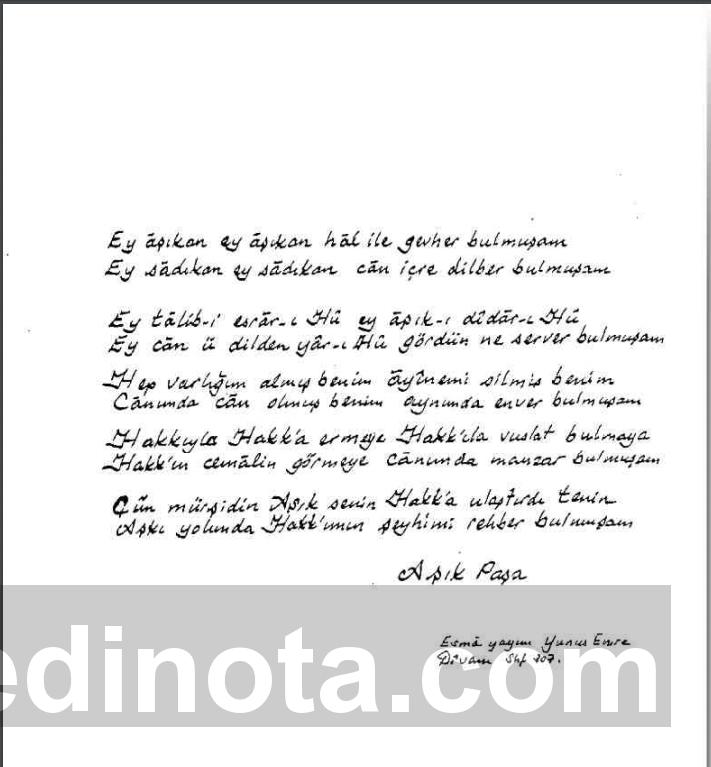 Ey āşıkan ey āşıkan hāl ile gevher bulmuşam
Ey sādıkan ey sādıkan cān içre dilber bulmuşam
Ey tālib-i esrār-ı Hû ey āşık-ı dîdār-ı Hû
Ey cān ü dilden yâr-ı Hû gördün ne server bulmuşam
Hep varlığım almış benim āyînemi silmiş benim
Cānımda cān olmuş benim aynımda enver bulmuşam
Hakkıyla Hakk'a ermeye Hakk'ıla vuslat bulmaya
Hakk'ın cemālin görmeye cānımda manzar bulmuşam
Çün mürşidin Aşık senin Hakk'a ulaştırdı tenin
Aşkı yolunda Hakk'ımın şeyhimi rehber bulmuşam
Aşık Paşa
Esmā yayım Yunus Emre
Dîvanı Shf 207.
edinota.com